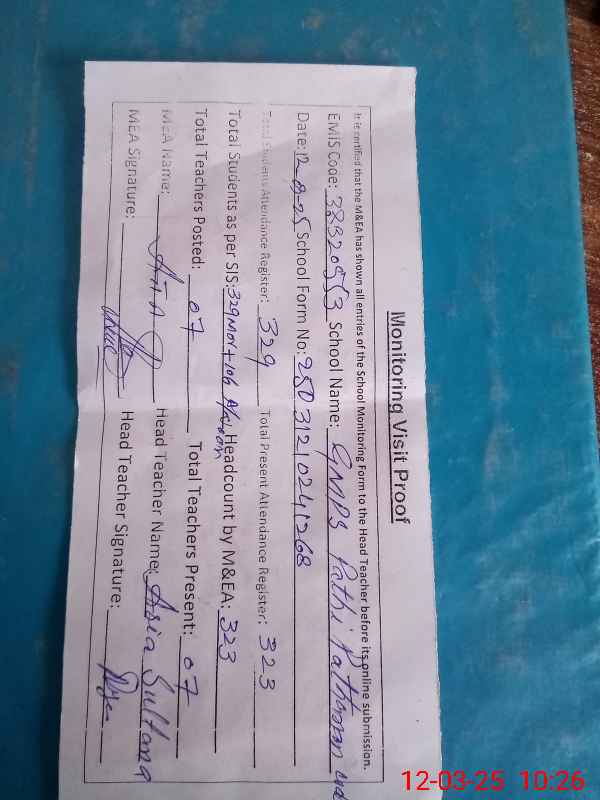 Monitoring Visit Proof
It is certified that the M&EA has shown all entries of the School Monitoring Form to the Head Teacher before its online submission.
EMIS Code: 38320553 School Name: GMPS Pathi Pathoran
Date: 12-03-25 School Form No: 2503121024 1268
Total Students Attendance Register: 329 Total Present Attendance Register: 323
Total Students as per SIS: 329 Mor+106 A/noon Headcount by M&EA: 323
Total Teachers Posted: 07 Total Teachers Present: 07
MEA Name: Head Teacher Name: Asia Sultana
MEA Signature: Head Teacher Signature:
12-03-25 10:26